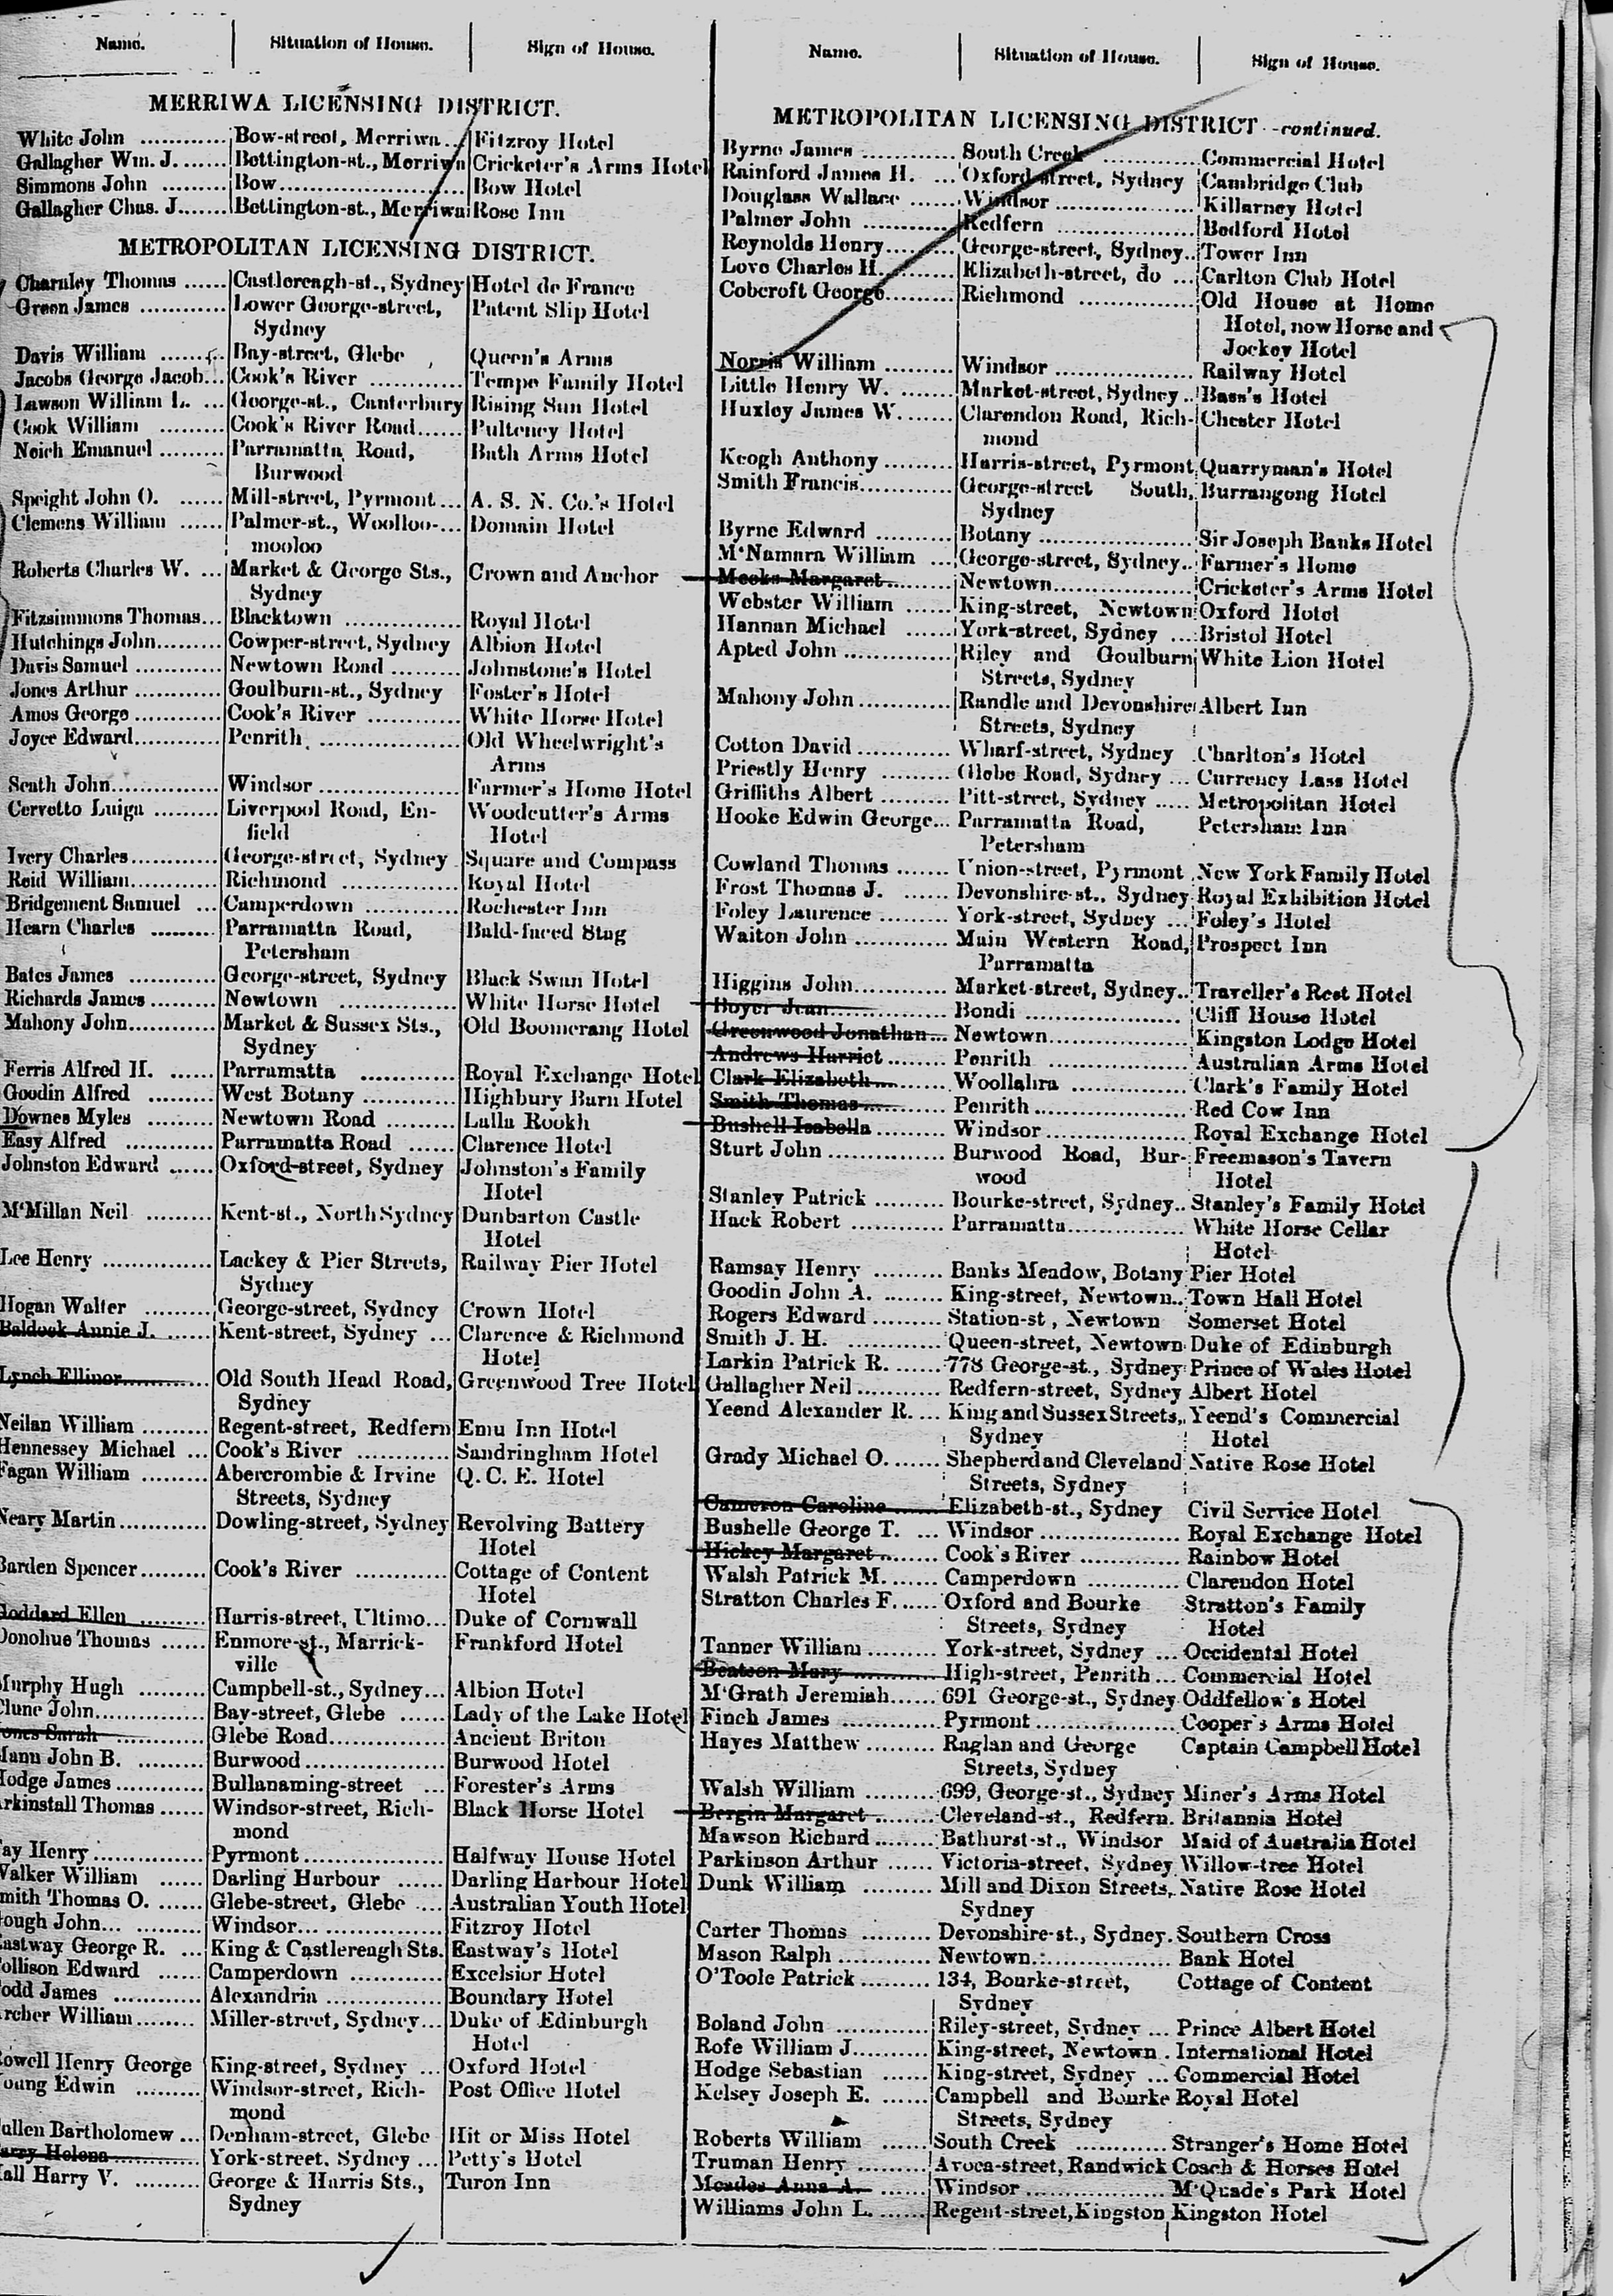 Name. Situation of House. Sign of House.
MERRIWA LICENSING DISTRICT.
White John ............ Bow-street, Merriwa... Fitzroy Hotel
Gallagher Wm. J. ...... Bettington-st., Merriwa Cricketer's Arms Hotel
Simmons John ......... Bow........................ Bow Hotel
Gallagher Chas. J....... Bettington-st., Merriwa Rose Inn
METROPOLITAN LICENSING DISTRICT.
Charnley Thomas ...... Castlereagh-st., Sydney Hotel de France
Green James ............ Lower George-street, Patent Slip Hotel
Sydney
Davis William ......... Bay-street, Glebe Queen's Arms
Jacobs George Jacob... Cook's River ............ Tempe Family Hotel
Lawson William L. ... George-st., Canterbury Rising Sun Hotel
Cook William ......... Cook's River Road...... Pulteney Hotel
Neich Emanuel ......... Parramatta Road, Bath Arms Hotel
Burwood
Speight John O. ...... Mill-street, Pyrmont... A. S. N. Co.'s Hotel
Clemens William ...... Palmer-st., Woolloo-... Domain Hotel
mooloo
Roberts Charles W. ... Market & George Sts., Crown and Anchor
Sydney
Fitzsimmons Thomas... Blacktown ............... Royal Hotel
Hutchings John......... Cowper-street, Sydney Albion Hotel
Davis Samuel ............ Newtown Road ......... Johnstone's Hotel
Jones Arthur ............ Goulburn-st., Sydney Foster's Hotel
Amos George ............ Cook's River ............ White Horse Hotel
Joyce Edward............ Penrith .................. Old Wheelwright's
Arms
Seath John............... Windsor .................. Farmer's Home Hotel
Cervetto Luiga ......... Liverpool Road, En- Woodcutter's Arms
field Hotel
Ivery Charles............ George-street, Sydney Square and Compass
Reid William............ Richmond ............... Royal Hotel
Bridgement Samuel ... Camperdown ............ Rochester Inn
Hearn Charles ......... Parramatta Road, Bald-faced Stag
Petersham
Bates James ............ George-street, Sydney Black Swan Hotel
Richards James......... Newtown ............... White Horse Hotel
Mahony John............ Market & Sussex Sts., Old Boomerang Hotel
Sydney
Ferris Alfred H. ...... Parramatta ............ Royal Exchange Hotel
Goodin Alfred ......... West Botany ............ Highbury Barn Hotel
Downes Myles ......... Newtown Road ......... Lalla Rookh
Easy Alfred ............ Parramatta Road ...... Clarence Hotel
Johnston Edward ...... Oxford-street, Sydney Johnston's Family
Hotel
M'Millan Neil ......... Kent-st., North Sydney Dunbarton Castle
Hotel
Lee Henry ............... Lackey & Pier Streets, Railway Pier Hotel
Sydney
Hogan Walter ......... George-street, Sydney Crown Hotel
Baldock Annie J. ...... Kent-street, Sydney ... Clarence & Richmond
Hotel
Lynch Ellinor............ Old South Head Road, Greenwood Tree Hotel
Sydney
Neilan William ......... Regent-street, Redfern Emu Inn Hotel
Hennessey Michael ... Cook's River ............ Sandringham Hotel
Fagan William ......... Abercrombie & Irvine Q. C. E. Hotel
Streets, Sydney
Neary Martin............ Dowling-street, Sydney Revolving Battery
Hotel
Barden Spencer......... Cook's River ............ Cottage of Content
Hotel
Goddard Ellen ......... Harris-street, Ultimo... Duke of Cornwall
Donohue Thomas ...... Enmore-st., Marrick- Frankford Hotel
ville
Murphy Hugh ......... Campbell-st., Sydney... Albion Hotel
Clune John............... Bay-street, Glebe ...... Lady of the Lake Hotel
Jones Sarah ............ Glebe Road............... Ancient Briton
Mann John B. ......... Burwood.................. Burwood Hotel
Hodge James ............ Bullanaming-street ... Forester's Arms
rkinstall Thomas ...... Windsor-street, Rich- Black Horse Hotel
mond
ay Henry ............... Pyrmont.................. Halfway House Hotel
Walker William ...... Darling Harbour ...... Darling Harbour Hotel
mith Thomas O. ...... Glebe-street, Glebe .... Australian Youth Hotel
ough John... ......... Windsor... ............... Fitzroy Hotel
astway George R. ... King & Castlereagh Sts. Eastway's Hotel
ollison Edward ...... Camperdown ............ Excelsior Hotel
odd James ............ Alexandria ............... Boundary Hotel
rcher William........ Miller-street, Sydney... Duke of Edinburgh
Hotel
owell Henry George King-street, Sydney ... Oxford Hotel
oung Edwin ......... Windsor-street, Rich- Post Office Hotel
mond
ullen Bartholomew ... Denham-street, Glebe Hit or Miss Hotel
arry Helena............ York-street, Sydney ... Petty's Hotel
all Harry V. ......... George & Harris Sts., Turon Inn
Sydney
Name. Situation of House. Sign of House.
METROPOLITAN LICENSING DISTRICT--continued.
Byrne James ............ South Creek ............ Commercial Hotel
Rainford James H. ... Oxford-street, Sydney Cambridge Club
Douglass Wallace ...... Windsor .................. Killarney Hotel
Palmer John ............ Redfern .................. Bedford Hotel
Reynolds Henry......... George-street, Sydney.. Tower Inn
Love Charles H.......... Elizabeth-street, do ... Carlton Club Hotel
Cobcroft George......... Richmond ............... Old House at Home
Hotel, now Horse and
Jockey Hotel
Norris William ......... Windsor .................. Railway Hotel
Little Henry W. ....... Market-street, Sydney.. Bass's Hotel
Huxley James W....... Clarendon Road, Rich- Chester Hotel
mond
Keogh Anthony ......... Harris-street, Pyrmont Quarryman's Hotel
Smith Francis............ George-street South, Burrangong Hotel
Sydney
Byrne Edward ......... Botany .................. Sir Joseph Banks Hotel
M'Namara William ... George-street, Sydney.. Farmer's Home
Meeks Margaret......... Newtown.................. Cricketer's Arms Hotel
Webster William ...... King-street, Newtown Oxford Hotel
Hannan Michael ...... York-street, Sydney ... Bristol Hotel
Apted John ............... Riley and Goulburn White Lion Hotel
Streets, Sydney
Mahony John ............ Randle and Devonshire Albert Inn
Streets, Sydney
Cotton David ............ Wharf-street, Sydney Charlton's Hotel
Priestly Henry ......... Glebe Road, Sydney ... Currency Lass Hotel
Griffiths Albert ......... Pitt-street, Sydney ..... Metropolitan Hotel
Hooke Edwin George... Parramatta Road, Petersham Inn
Petersham
Cowland Thomas ....... Union-street, Pyrmont New York Family Hotel
Frost Thomas J. ...... Devonshire-st., Sydney Royal Exhibition Hotel
Foley Laurence ......... York-street, Sydney ... Foley's Hotel
Waiton John ............ Main Western Road, Prospect Inn
Parramatta
Higgins John............ Market-street, Sydney.. Traveller's Rest Hotel
Boyer Jean............... Bondi .................... Cliff House Hotel
Greenwood Jonathan... Newtown.................. Kingston Lodge Hotel
Andrews Harriet ....... Penrith .................. Australian Arms Hotel
Clark Elizabeth......... Woollahra ............... Clark's Family Hotel
Smith Thomas ......... Penrith .................. Red Cow Inn
Bushell Isabella ......... Windsor .................. Royal Exchange Hotel
Sturt John ............... Burwood Road, Bur- Freemason's Tavern
wood Hotel
Stanley Patrick ......... Bourke-street, Sydney.. Stanley's Family Hotel
Hack Robert ............ Parramatta............... White Horse Cellar
Hotel
Ramsay Henry ......... Banks Meadow, Botany Pier Hotel
Goodin John A. ........ King-street, Newtown.. Town Hall Hotel
Rogers Edward ......... Station-st, Newtown Somerset Hotel
Smith J. H. ............ Queen-street, Newtown Duke of Edinburgh
Larkin Patrick R. ...... 778 George-st., Sydney Prince of Wales Hotel
Gallagher Neil ........... Redfern-street, Sydney Albert Hotel
Yeend Alexander R. ... King and Sussex Streets, Yeend's Commercial
Sydney Hotel
Grady Michael O. ...... Shepherd and Cleveland Native Rose Hotel
Streets, Sydney
Cameron Caroline....... Elizabeth-st., Sydney Civil Service Hotel
Bushelle George T. ... Windsor .................. Royal Exchange Hotel
Hickey Margaret......... Cook's River ............ Rainbow Hotel
Walsh Patrick M. ...... Camperdown ............ Clarendon Hotel
Stratton Charles F...... Oxford and Bourke Stratton's Family
Streets, Sydney Hotel
Tanner William ......... York-street, Sydney ... Occidental Hotel
Beatson Mary ............ High-street, Penrith ... Commercial Hotel
M'Grath Jeremiah...... 691 George-st., Sydney Oddfellow's Hotel
Finch James ............ Pyrmont .................. Cooper's Arms Hotel
Hayes Matthew ......... Raglan and George Captain Campbell Hotel
Streets, Sydney
Walsh William ......... 699, George-st., Sydney Miner's Arms Hotel
Bergin Margaret......... Cleveland-st., Redfern. Britannia Hotel
Mawson Richard ......... Bathurst-st., Windsor Maid of Australia Hotel
Parkinson Arthur ...... Victoria-street, Sydney Willow-tree Hotel
Dunk William ......... Mill and Dixon Streets, Native Rose Hotel
Sydney
Carter Thomas ......... Devonshire-st., Sydney. Southern Cross
Mason Ralph ............ Newtown.................. Bank Hotel
O'Toole Patrick ......... 134, Bourke-street, Cottage of Content
Sydney
Boland John ............ Riley-street, Sydney ... Prince Albert Hotel
Rofe William J.......... King-street, Newtown . International Hotel
Hodge Sebastian ...... King-street, Sydney ... Commercial Hotel
Kelsey Joseph E. ...... Campbell and Bourke Royal Hotel
Streets, Sydney
Roberts William ...... South Creek ............ Stranger's Home Hotel
Truman Henry ......... Avoca-street, Randwick Coach & Horses Hotel
Meades Anna A. ...... Windsor .................. M'Quade's Park Hotel
Williams John L. ...... Regent-street, Kingston Kingston Hotel